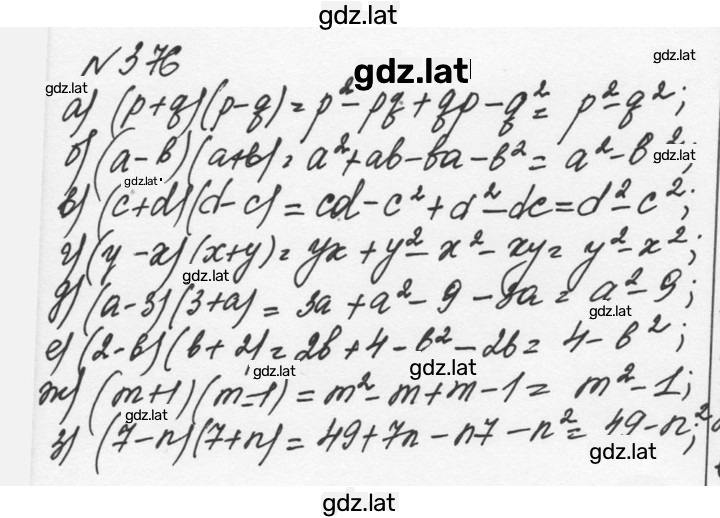 gdz.lat
№ 376
gdz.lat
gdz.lat
gdz.lat
а) (p+q)(p-q) = p²-pq+qp-q² = p²-q²;
б) (a-b)(a+b) = a²+ab-ba-b² = a²-b²;
gdz.lat
gdz.lat
в) (c+d)(d-c) = cd-c²+d²-dc = d²-c²;
г) (y-x)(x+y) = yx+y²-x²-xy = y²-x²;
gdz.lat
д) (a-3)(3+a) = 3a+a²-9-3a = a²-9;
gdz.lat
е) (2-b)(b+2) = 2b+4-b²-2b = 4-b²;
gdz.lat
gdz.lat
ж) (m+1)(m-1) = m²-m+m-1 = m²-1;
gdz.lat
з) (7-n)(7+n) = 49+7n-n7-n² = 49-n²;
gdz.lat
gdz.lat